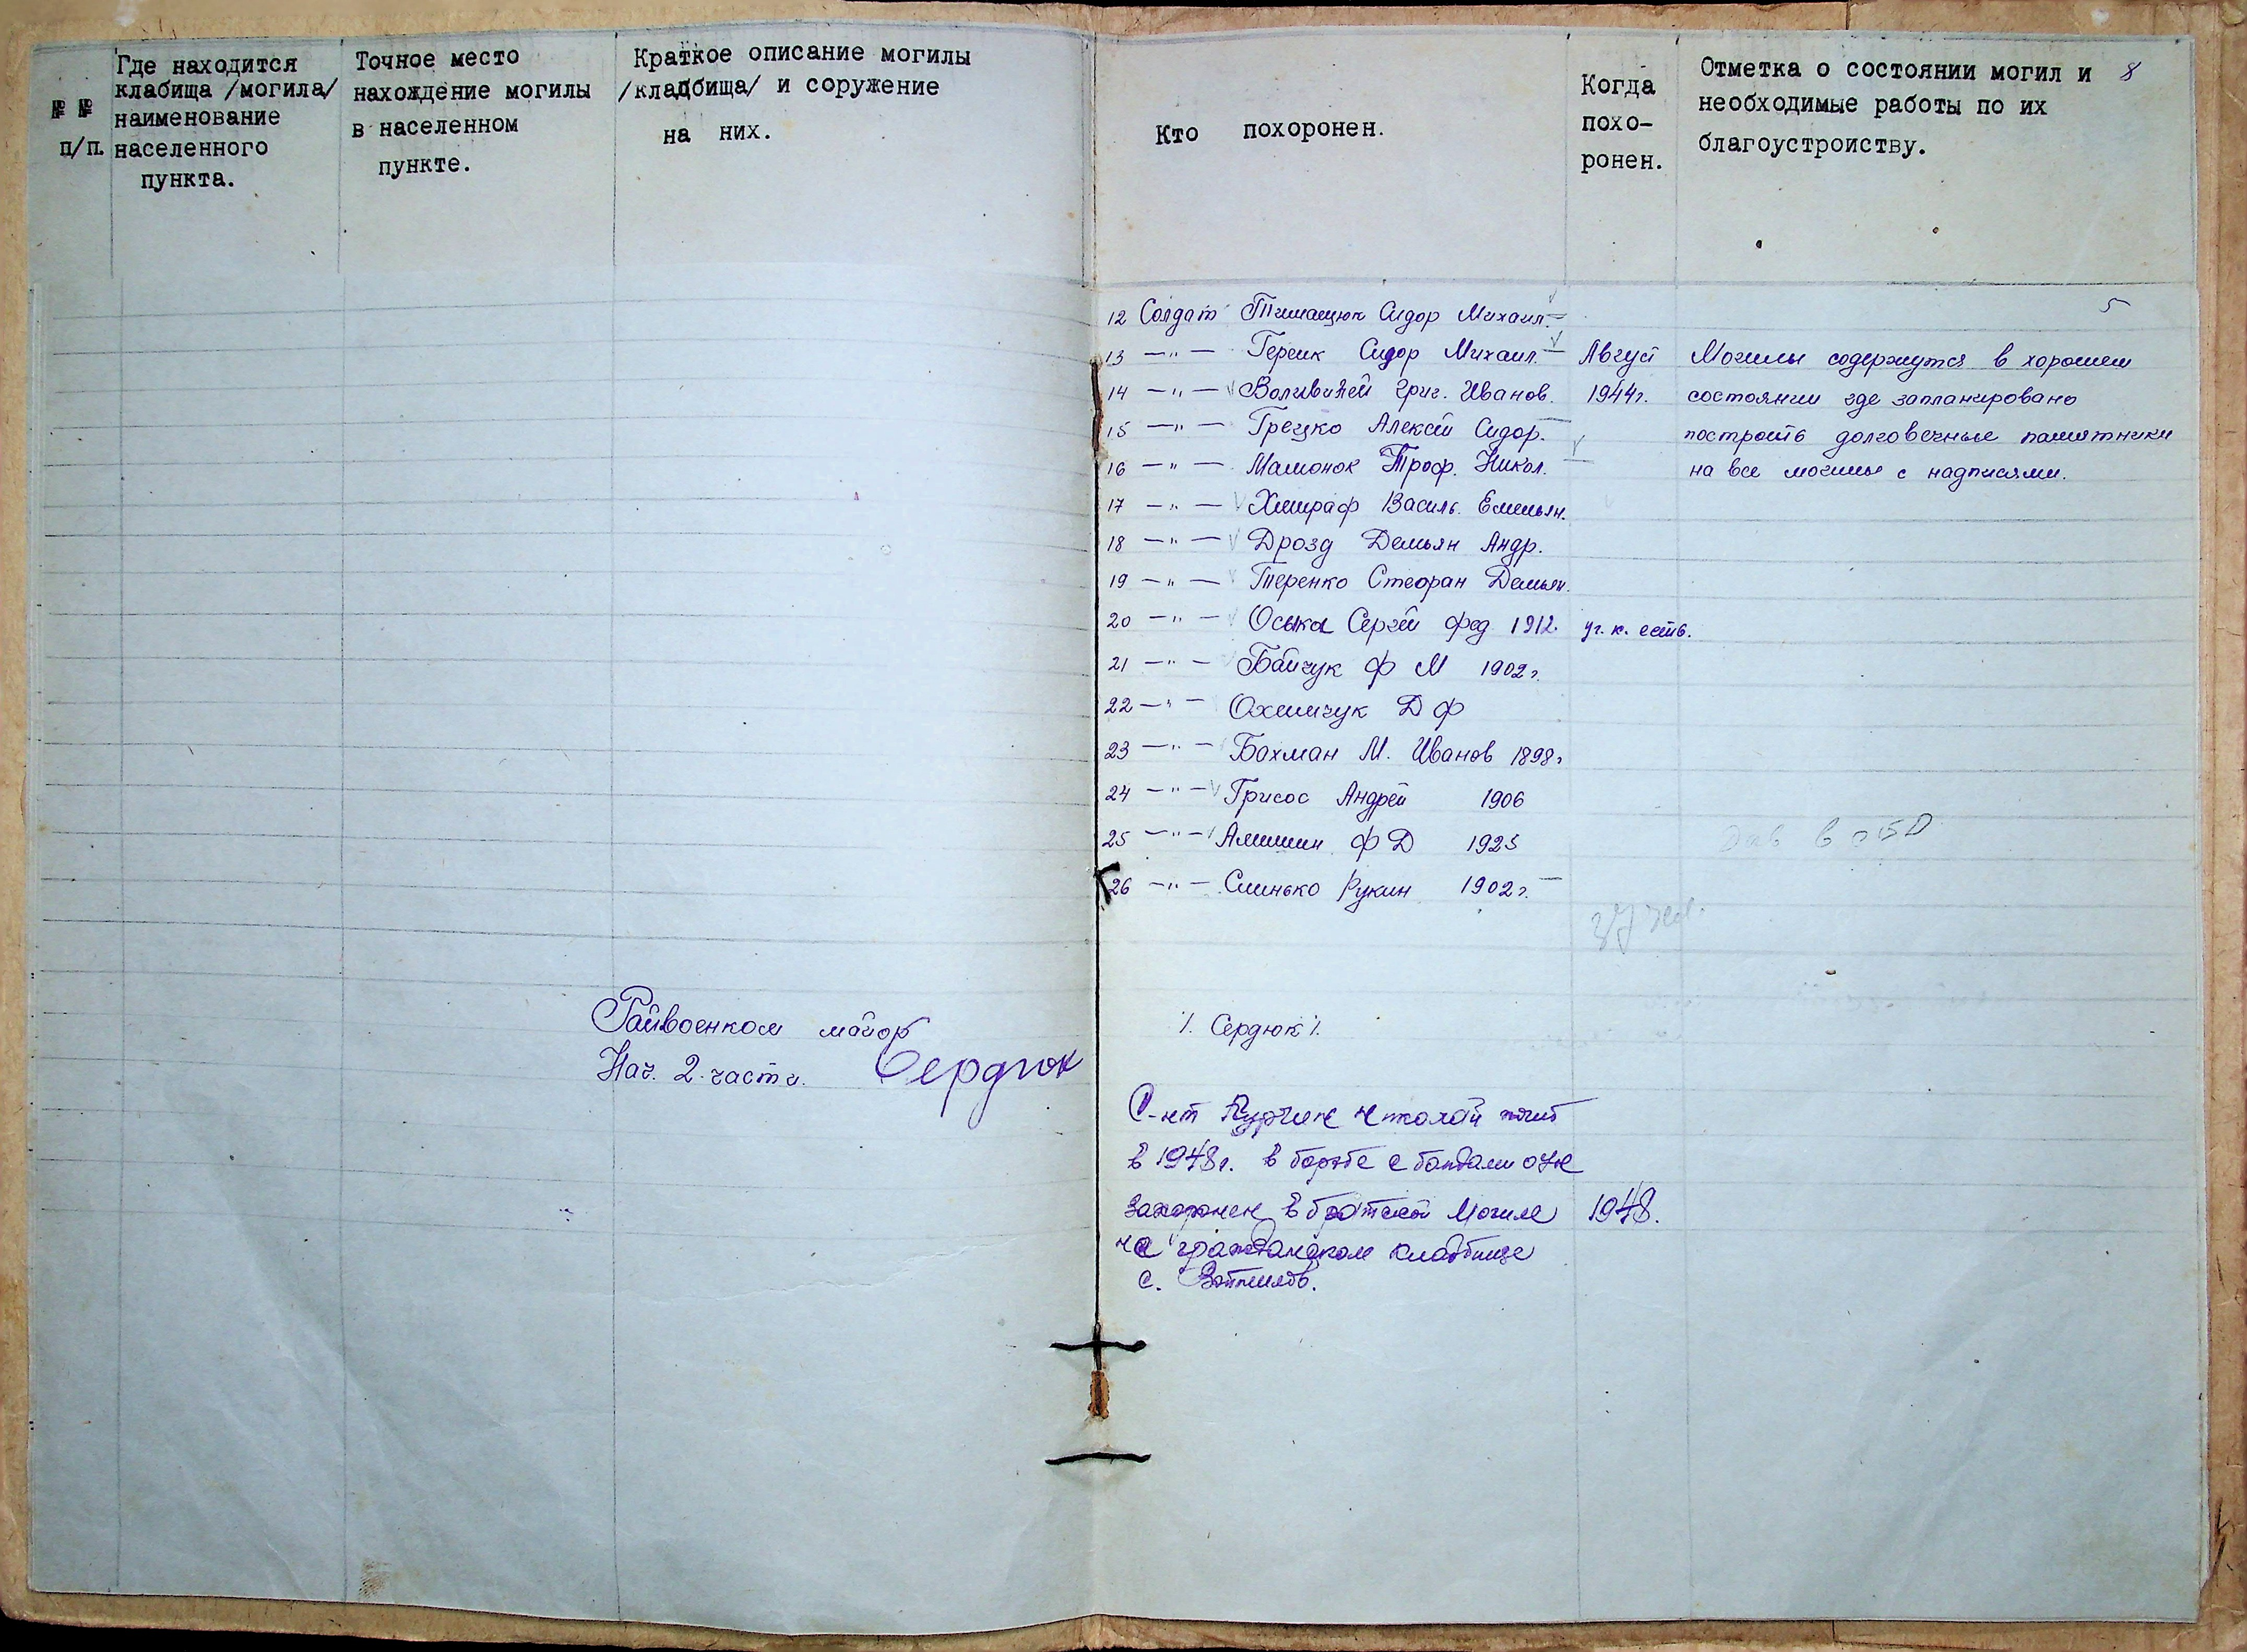 № №
п/п.
Где находится
клабища /могила/
наименование
населенного
пункта.
Точное место
нахождение могилы
в населенном
пункте.
Краткое описание могилы
/кладбища/ и соружение
на них.
Кто похоронен.
Когда
похо-
ронен.
Отметка о состоянии могил и
необходимые работы по их
благоустроиству.
8
5
12 Солдат Тимащюк Сидор Михаил.
13 —"— Гереик Сидор Михаил. — Август Могилы содержутся в хорошем
14 —"— Григ. Иванов. 1944г. состоянии где запланировано
15 —"— Грецко Алексей Сидор. построить долговечные памятники
16 —"— Мамонок Троф. Никол. на все могилы с надписями.
17 —"— Василь. Емельян.
18 —"— Дрозд Демьян Андр.
19 —"— Теренко Стефан Демьян.
20 —"— Оська Сергей Фед 1912. уг. к. есть.
21 —"— Байчук Ф М 1902г.
22 —"— Охимчук Д Ф
23 —"— Бахман М. Иванов 1898г
24 —"— Грисос Андрей 1906
25 —"— Алишин Ф Д 1925
26 —"— Синько Рукин 1902г. —
в ОБД
Райвоенком майор
Нач. 2 части. Сердюк
/. Сердюк /.
С-нт Николай погиб
в 1948г. в борьбе с бандами ОУН
Захоронен в братской могиле 1948.
на гражданском кладбище
с.